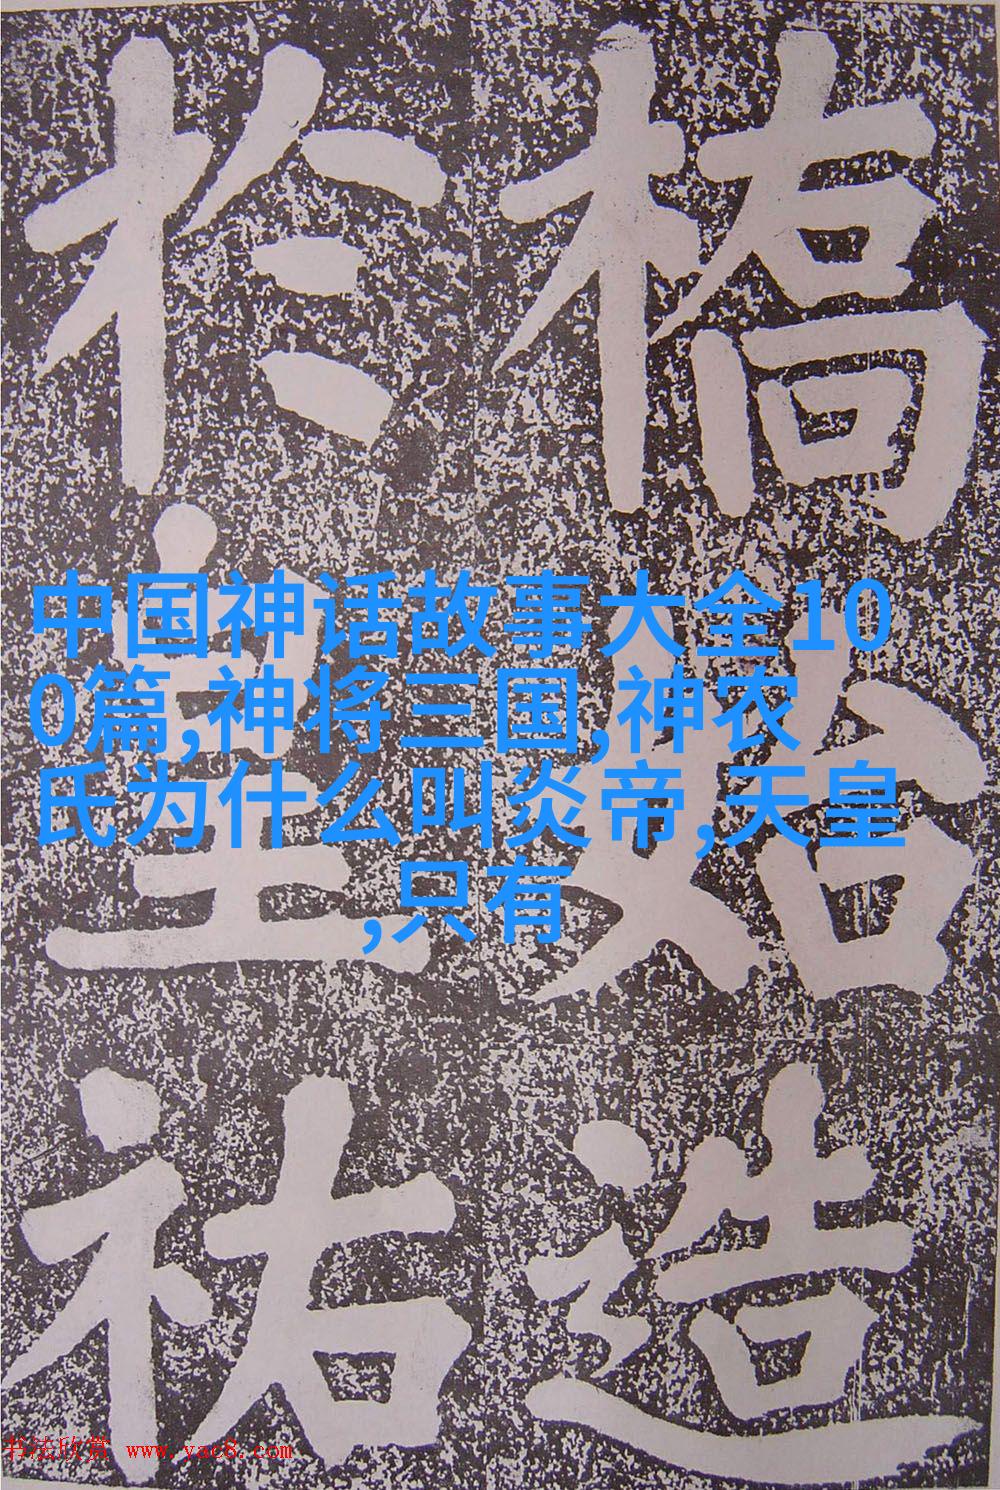 橋始造
於皇祐
中国神话故事大全10
0篇,神将三国,神农
氏为什么叫炎帝,天皇
,只有
书法欣赏 www.yac8.com